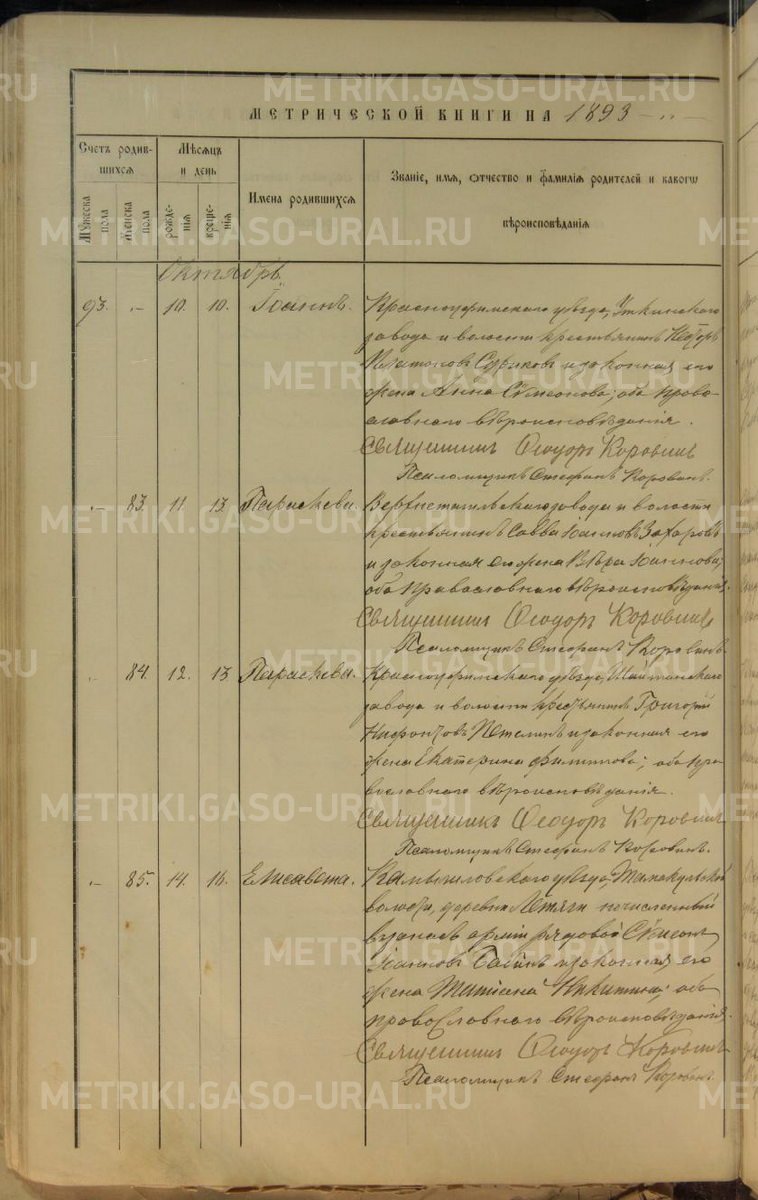 МЕТРИЧЕСКОЙ КНИГИ НА 1893
Счетъ родив-
шихся
Мѣсяцъ
и день
Мужеска
пола
Женска
пола
рожде-
нія
креще-
нія
Имена родившихся
Званіе, имя, отчество и фамилія родителей и какого
вѣроисповѣданія
Октябрь.
93. 10. 10. Іоаннъ. Красноуфимскаго уѣзда, Уткинскаго
завода и волости крестьянинъ
Платоновъ и законная его
жена Анна Сѵмеонова; оба право-
славнаго вѣроисповѣданія.
Священникъ Ѳеодоръ Коровинъ
Псаломщикъ Стефанъ Коровинъ.
83. 11 13 Параскева. завода и волости
крестьянинъ Савва Іоанновъ Захаровъ
и законная его жена Вѣра Іоаннова;
оба православнаго вѣроисповѣданія.
Священникъ Ѳеодоръ Коровинъ
Псаломщикъ Стефанъ Коровинъ.
84. 12. 13 Параскева. Красноуфимскаго уѣзда, Шайтанскаго
завода и волости крестьянинъ Григорій
Нифонтовъ и законная его
жена Екатерина Филиппова; оба пра-
вославнаго вѣроисповѣданія.
Священникъ Ѳеодоръ Коровинъ
Псаломщикъ Стефанъ Коровинъ.
85. 14. 16. Елисавета. Камышловскаго уѣзда, Тамакульской
волости, деревни зачисленный
въ запасъ арміи рядовой Сѵмеонъ
Іоанновъ и законная его
жена Татіана Никитина; оба
православнаго вѣроисповѣданія.
Священникъ Ѳеодоръ Коровинъ
Псаломщикъ Стефанъ Коровинъ
METRIKI.GASO-URAL.RU